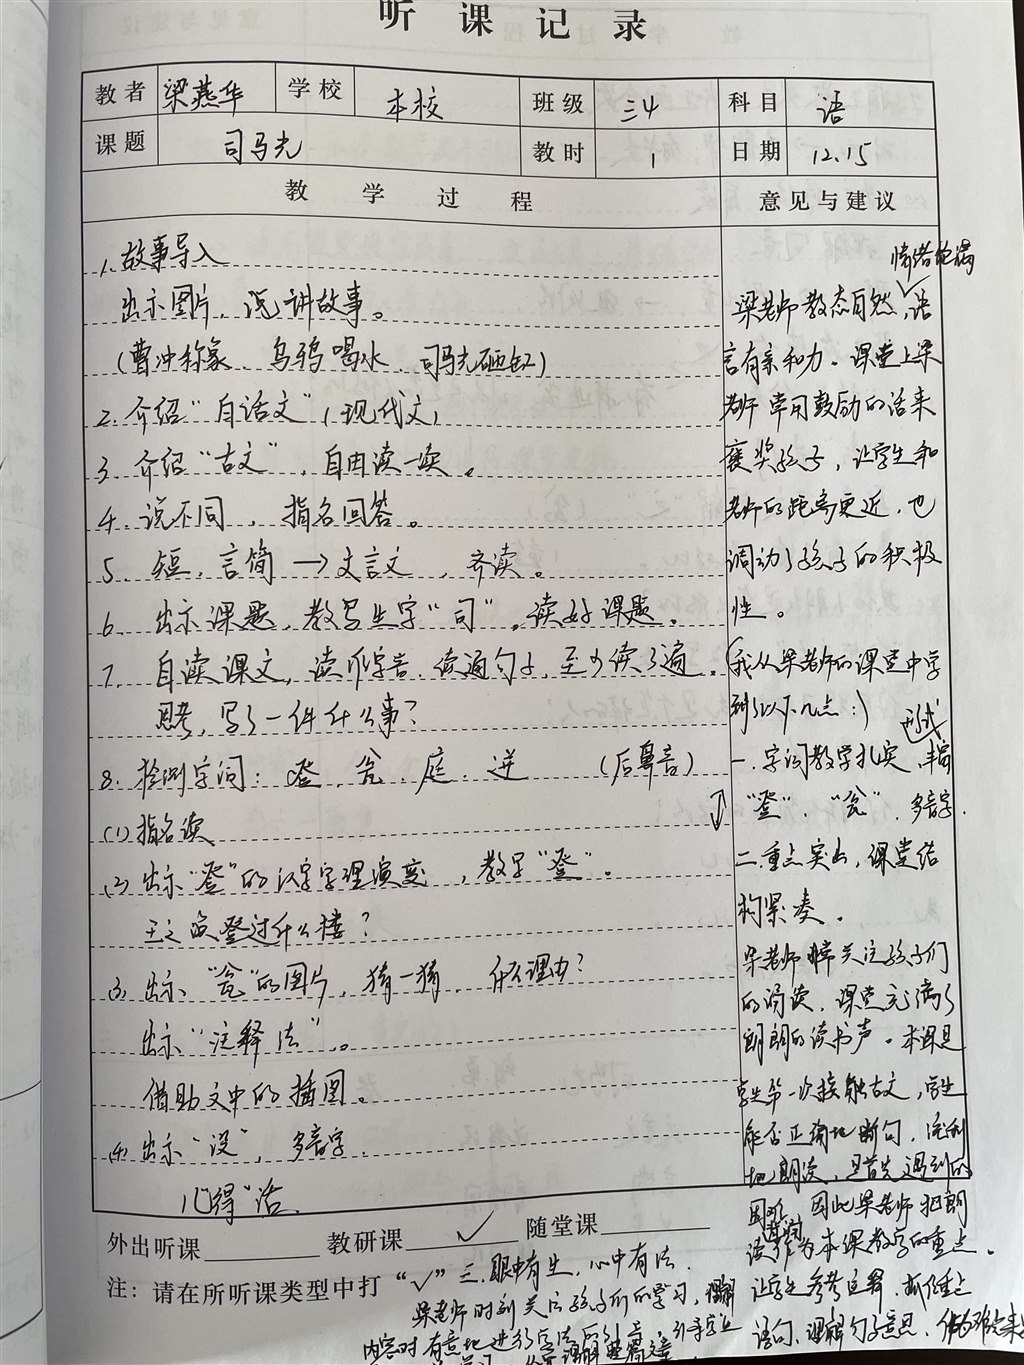 听课记录
教者 梁燕华 学校 本校 班级 三4 科目 语
课题 司马光 教时 1 日期 12.15
教学过程 意见与建议
1. 故事导入
出示图片，说讲故事。
(曹冲称象、乌鸦喝水、司马光砸缸)
2. 介绍“白话文”(现代文)
3. 介绍“古文”，自由读一读。
4. 说不同，指名回答。
5. 短，言简→文言文，齐读。
6. 出示课题，教写生字“司”，读好课题。
7. 自读课文，读准字音，读通句子，至少读3遍。
思考，写了一件什么事？
8. 检测字词：登、瓮、庭、迸 (后鼻音)
(1) 指名读
(2) 出示“登”的汉字字理演变，教写“登”。
王之涣登过什么楼？
(3) 出示“瓮”的图片，猜一猜，什么理由？
出示“注释法”。
借助文中的插图。
(4) 出示“没”，多音字
心得“活
情绪饱满
梁老师教态自然，语
言有亲和力。课堂上梁
老师常用鼓励的话来
褒奖孩子，让学生和
老师的距离更近，也
调动了孩子的积极
性。
(我从梁老师的课堂中学
到了以下几点：)
形式
一. 字词教学扎实，丰富
“登”、“瓮”、多音字.
二. 重点突出，课堂结
构紧凑。
梁老师非常关注孩子们
的诵读，课堂充满了
朗朗的读书声。本课是
学生第一次接触古文，学生
能否正确地断句，流利
地朗读，是首先遇到的
困难，因此梁老师把朗
读作为本课教学的重点。
让学生参考注释，抓住重点
语句，理解句子意思，
外出听课 教研课 √ 随堂课
注：请在所听课类型中打“√”
三. 眼中有生，心中有法.
梁老师时刻关注孩子们的学习，理解
内容时有意地进行